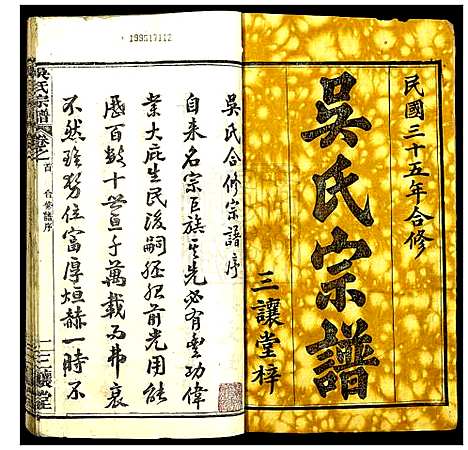 民國三十五年合修
吳氏宗譜
三讓堂梓
吳氏合修宗譜序
自来名宗巨族其先必有豐功偉
業大庇生民後嗣繩承前光用能
歷百數十世亘千萬載而弗衰
不然雖勢位富厚烜赫一時不
吳氏宗譜 卷之首 合修譜序 一 三讓堂
199517112